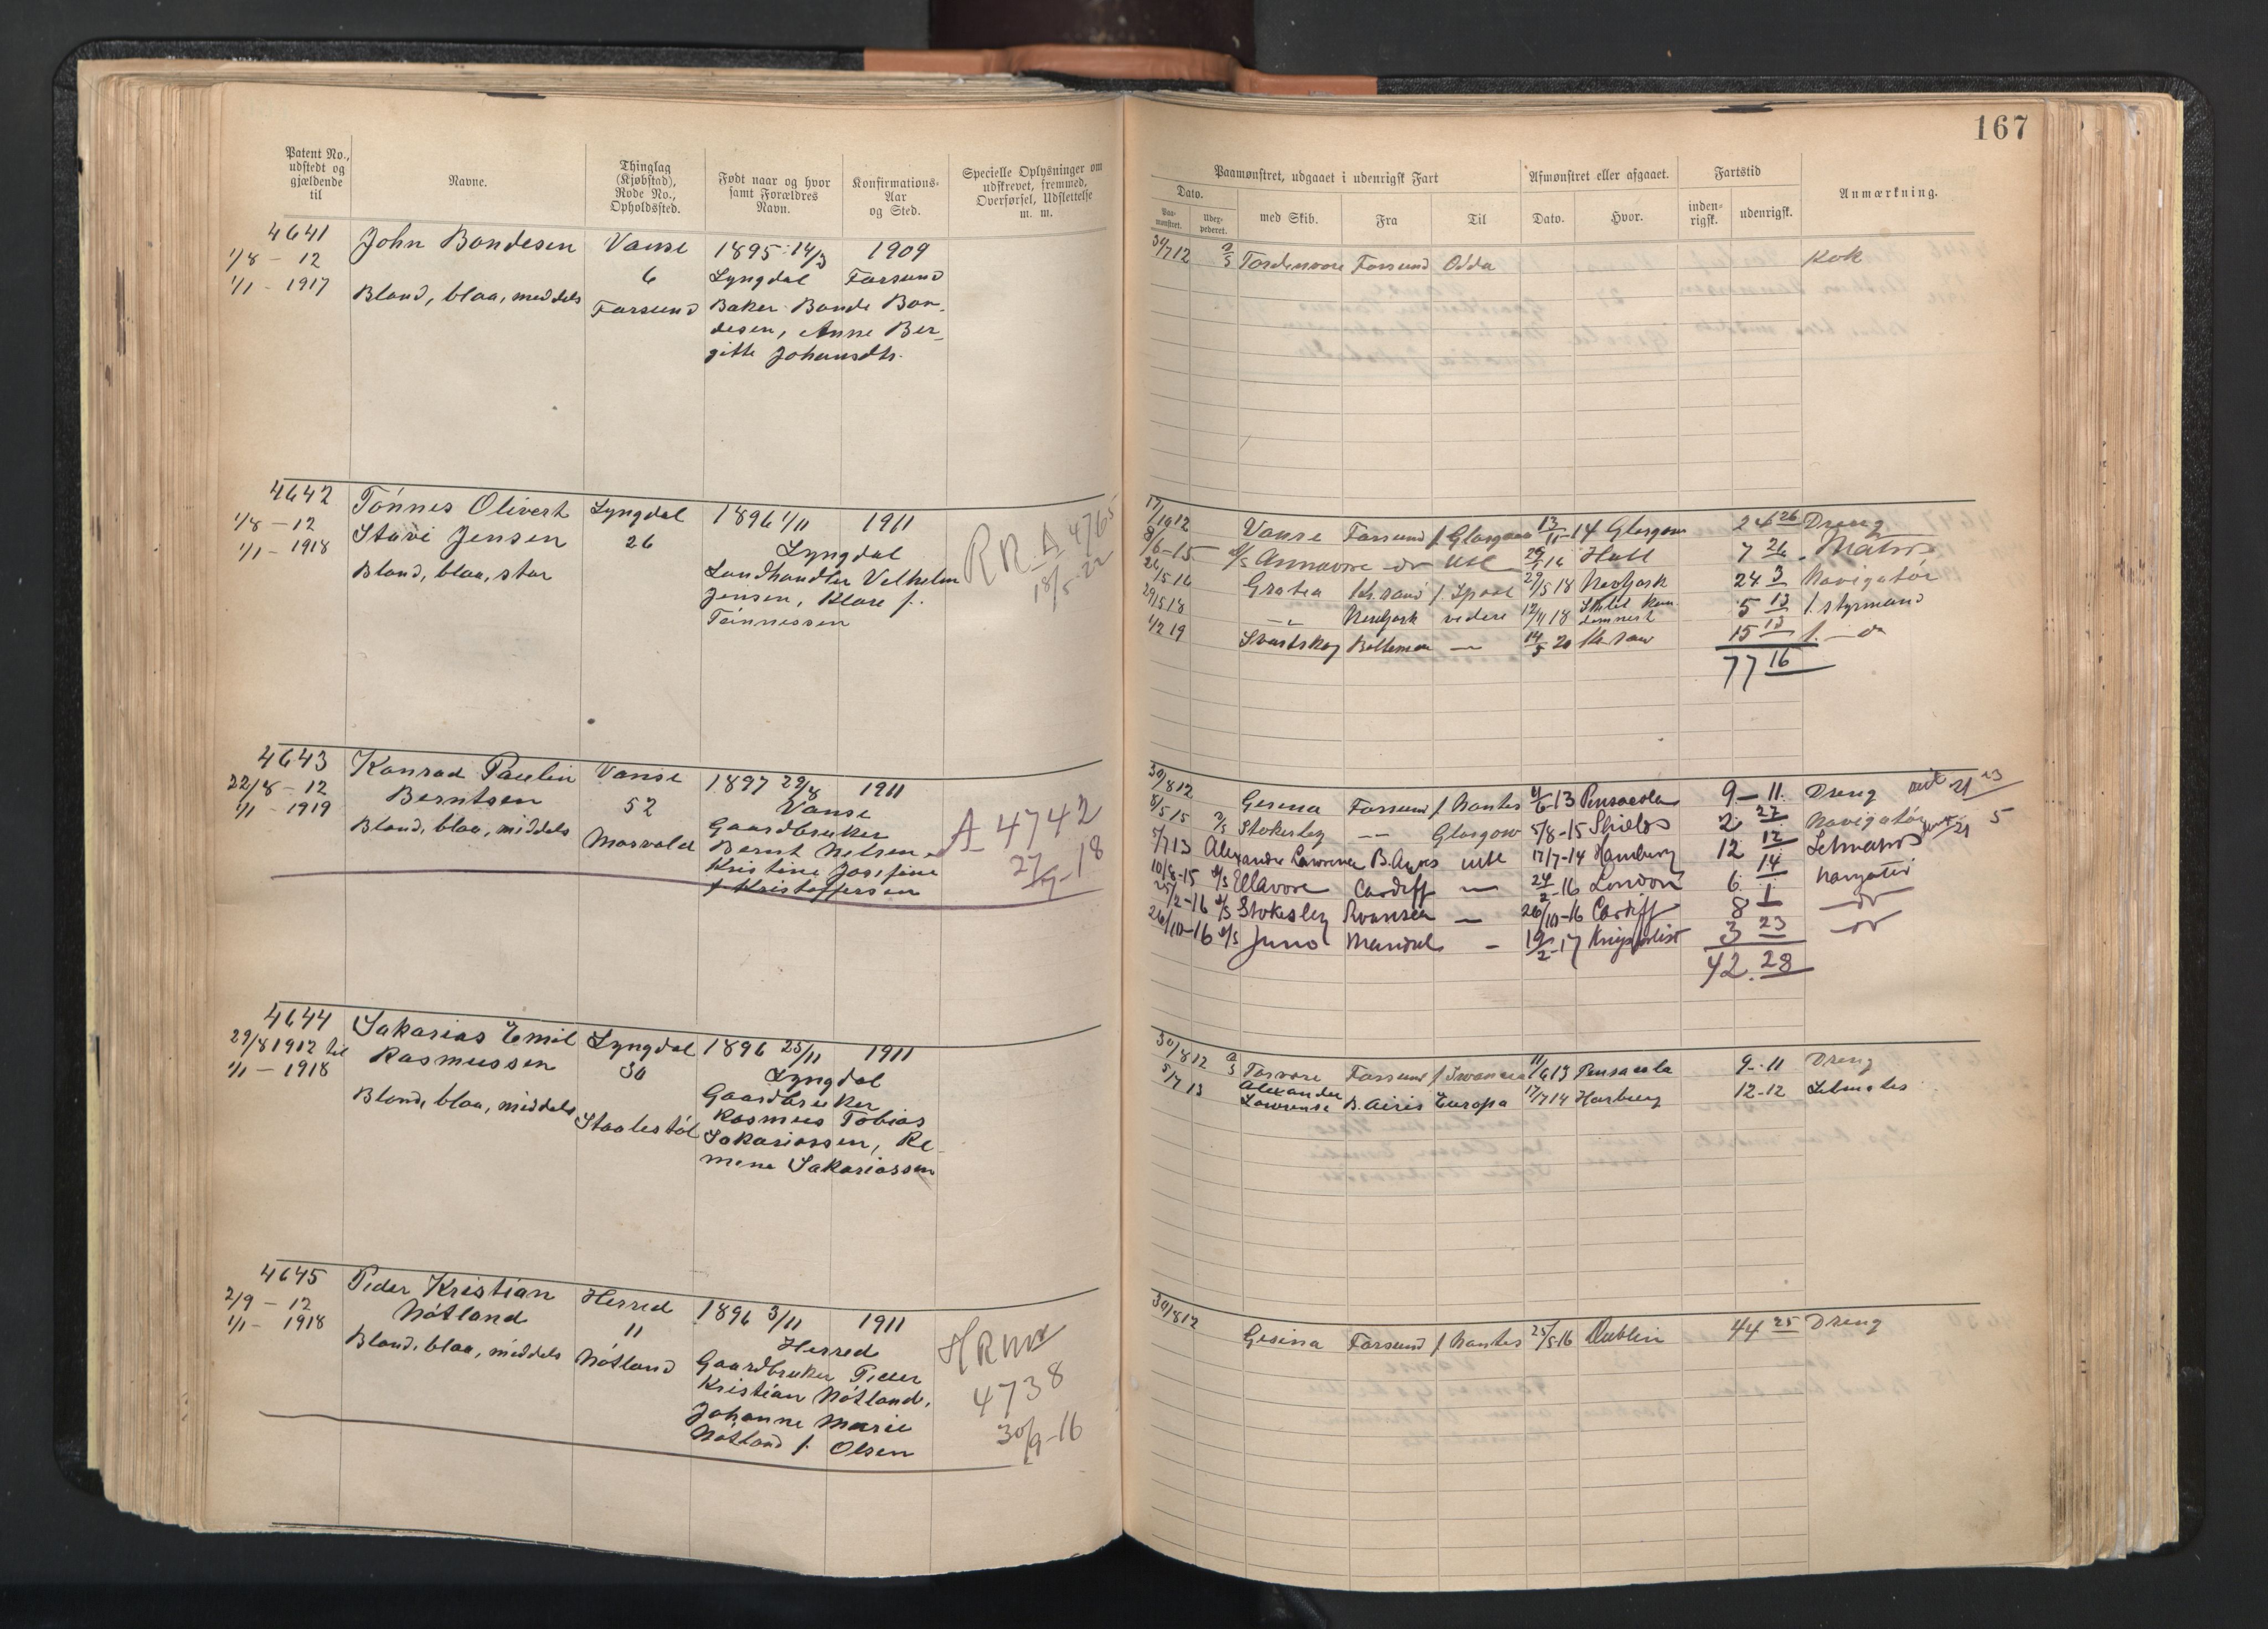 167
Patent No., udstedt og gjældende til
Navne.
Thinglag (Kjøbstad), Rode No., Opholdssted.
Født naar og hvor samt Forældres Navn.
Konfirmations-Aar og Sted.
Specielle Oplysninger om udskrevet, fremmed, Overførsel, Udslettelse m. m.
Paamønstret, udgaaet i udenrigsk Fart
Dato.
Paa-mønstret.
med Skib.
Fra
Til
Afmønstret eller afgaaet.
Dato.
Hvor.
Fartstid
inden-rigsk.
udenrigsk.
Anmærkning.
4641
1/8 - 12
1/1 - 1917
John Bondesen
Blond, blaa, meddels
Vanse
6
Farsund
1895 14/3
Lyngdal
Baker Bonde Bon-
desen, Anne Ber-
gitte Johansdtr.
1909
Farsund
30/7 12 Tordenvore Farsund Odda Kok
4642
1/8 - 12
1/1 - 1918
Tönnes Olivert
Stave Jensen
Blond, blaa, stor
Lyngdal
26
1896 1/11 1911
Lyngdal
Landhandler Velhelm
Jensen, Klara f.
Tönnessen
A 4765
18/5-22
17/10 12 Vanse Farsund f Glasgow 13/11-14 Glasgow 24 26 Dreng
8/6-15 Annavore do Utl Hull 7 26 Matros
26/1 5 16 Gratia Kr.sand 29/5 18 NewYork 24 3 Navigatör
29/5 18 NewYork videre 12/11 18 5 13 1. styrmand
1/2 19 Svartskog 14/5 20 15 13 1. do
77 16
4643
22/8 - 12
1/1 - 1919
Konrad Paulin
Berntsen
Blond, blaa, middels
Vanse
52
Morvold
1897 29/8 1911
Vanse
Gaardbruker
Bernt Nelsen
Kristine Josefine
f Kristoffersen
A 4742
27/9-18
30/8 12 Gesina Farsund f Nantes 11/6-13 Pensacola 9-11 Dreng
8/5 15 Stokesley Glasgow 5/8-15 Shields 2 27 Navigatör
5/7 13 Alexander Lawrence B. Ayres utl 17/7-14 Hamburg 12 12 Letmatros
10/8-15 Ellavore Cardiff 24/2-16 London 6 14 navigatör
25/2-16 Stokesley 26/10-16 Cardiff 8 1 do
26/10-16 Juno Mandal 19/2-17 Krigsforlist 3 23 do
42.28
4644
29/8 1912 til
1/1 - 1918
Sakarias Emil
Rasmussen
Blond, blaa, middels
Lyngdal
30
Staalestöl
1896 25/11 1911
Lyngdal
Gaardbruker
Rasmus Tobias
Sakariassen, Re-
mine Sakariassen
30/8 12 Torvore Farsund f Swansea 11/6 13 Pensacola 9-11 Dreng
5/7 13 Alexander Lawrense B. Airis Europa 17/7 14 Harburg 12-12 Letmatros
4645
2/9 - 12
1/1 - 1918
Peder Kristian
Nötland
Blond, blaa, middels
Herred
11
Nötland
1896 3/11 1911
Herred
Gaardbruker Peder
Kristian Nötland,
Johanne Marie
Nötland f. Olsen
4738
30/9-16
30/8 12 Gesina Farsund f Nantes 25/5-16 Dublin 44 25 Dreng